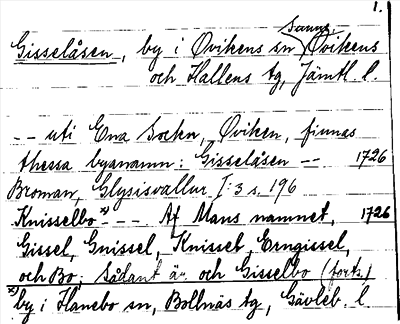 1.
Sunne,
Gisselåsen, by i Ovikens sn Ovikens
och Hallens tg, Jämtl. l.
-- uti Ena Sockn, Oviken, finnas
thessa bynamn: Gisselåsen -- 1726
Broman, Glysisvallur I:3 s. 196
Knisselbo x) -- Af Mans namnet, 1726
Gissel, Gnissel, Knissel, Erngissel,
och Bo; Sådant är och Gisselbo (forts.)
x) by i Hanebo sn, Bollnäs tg, Gävleb. l.